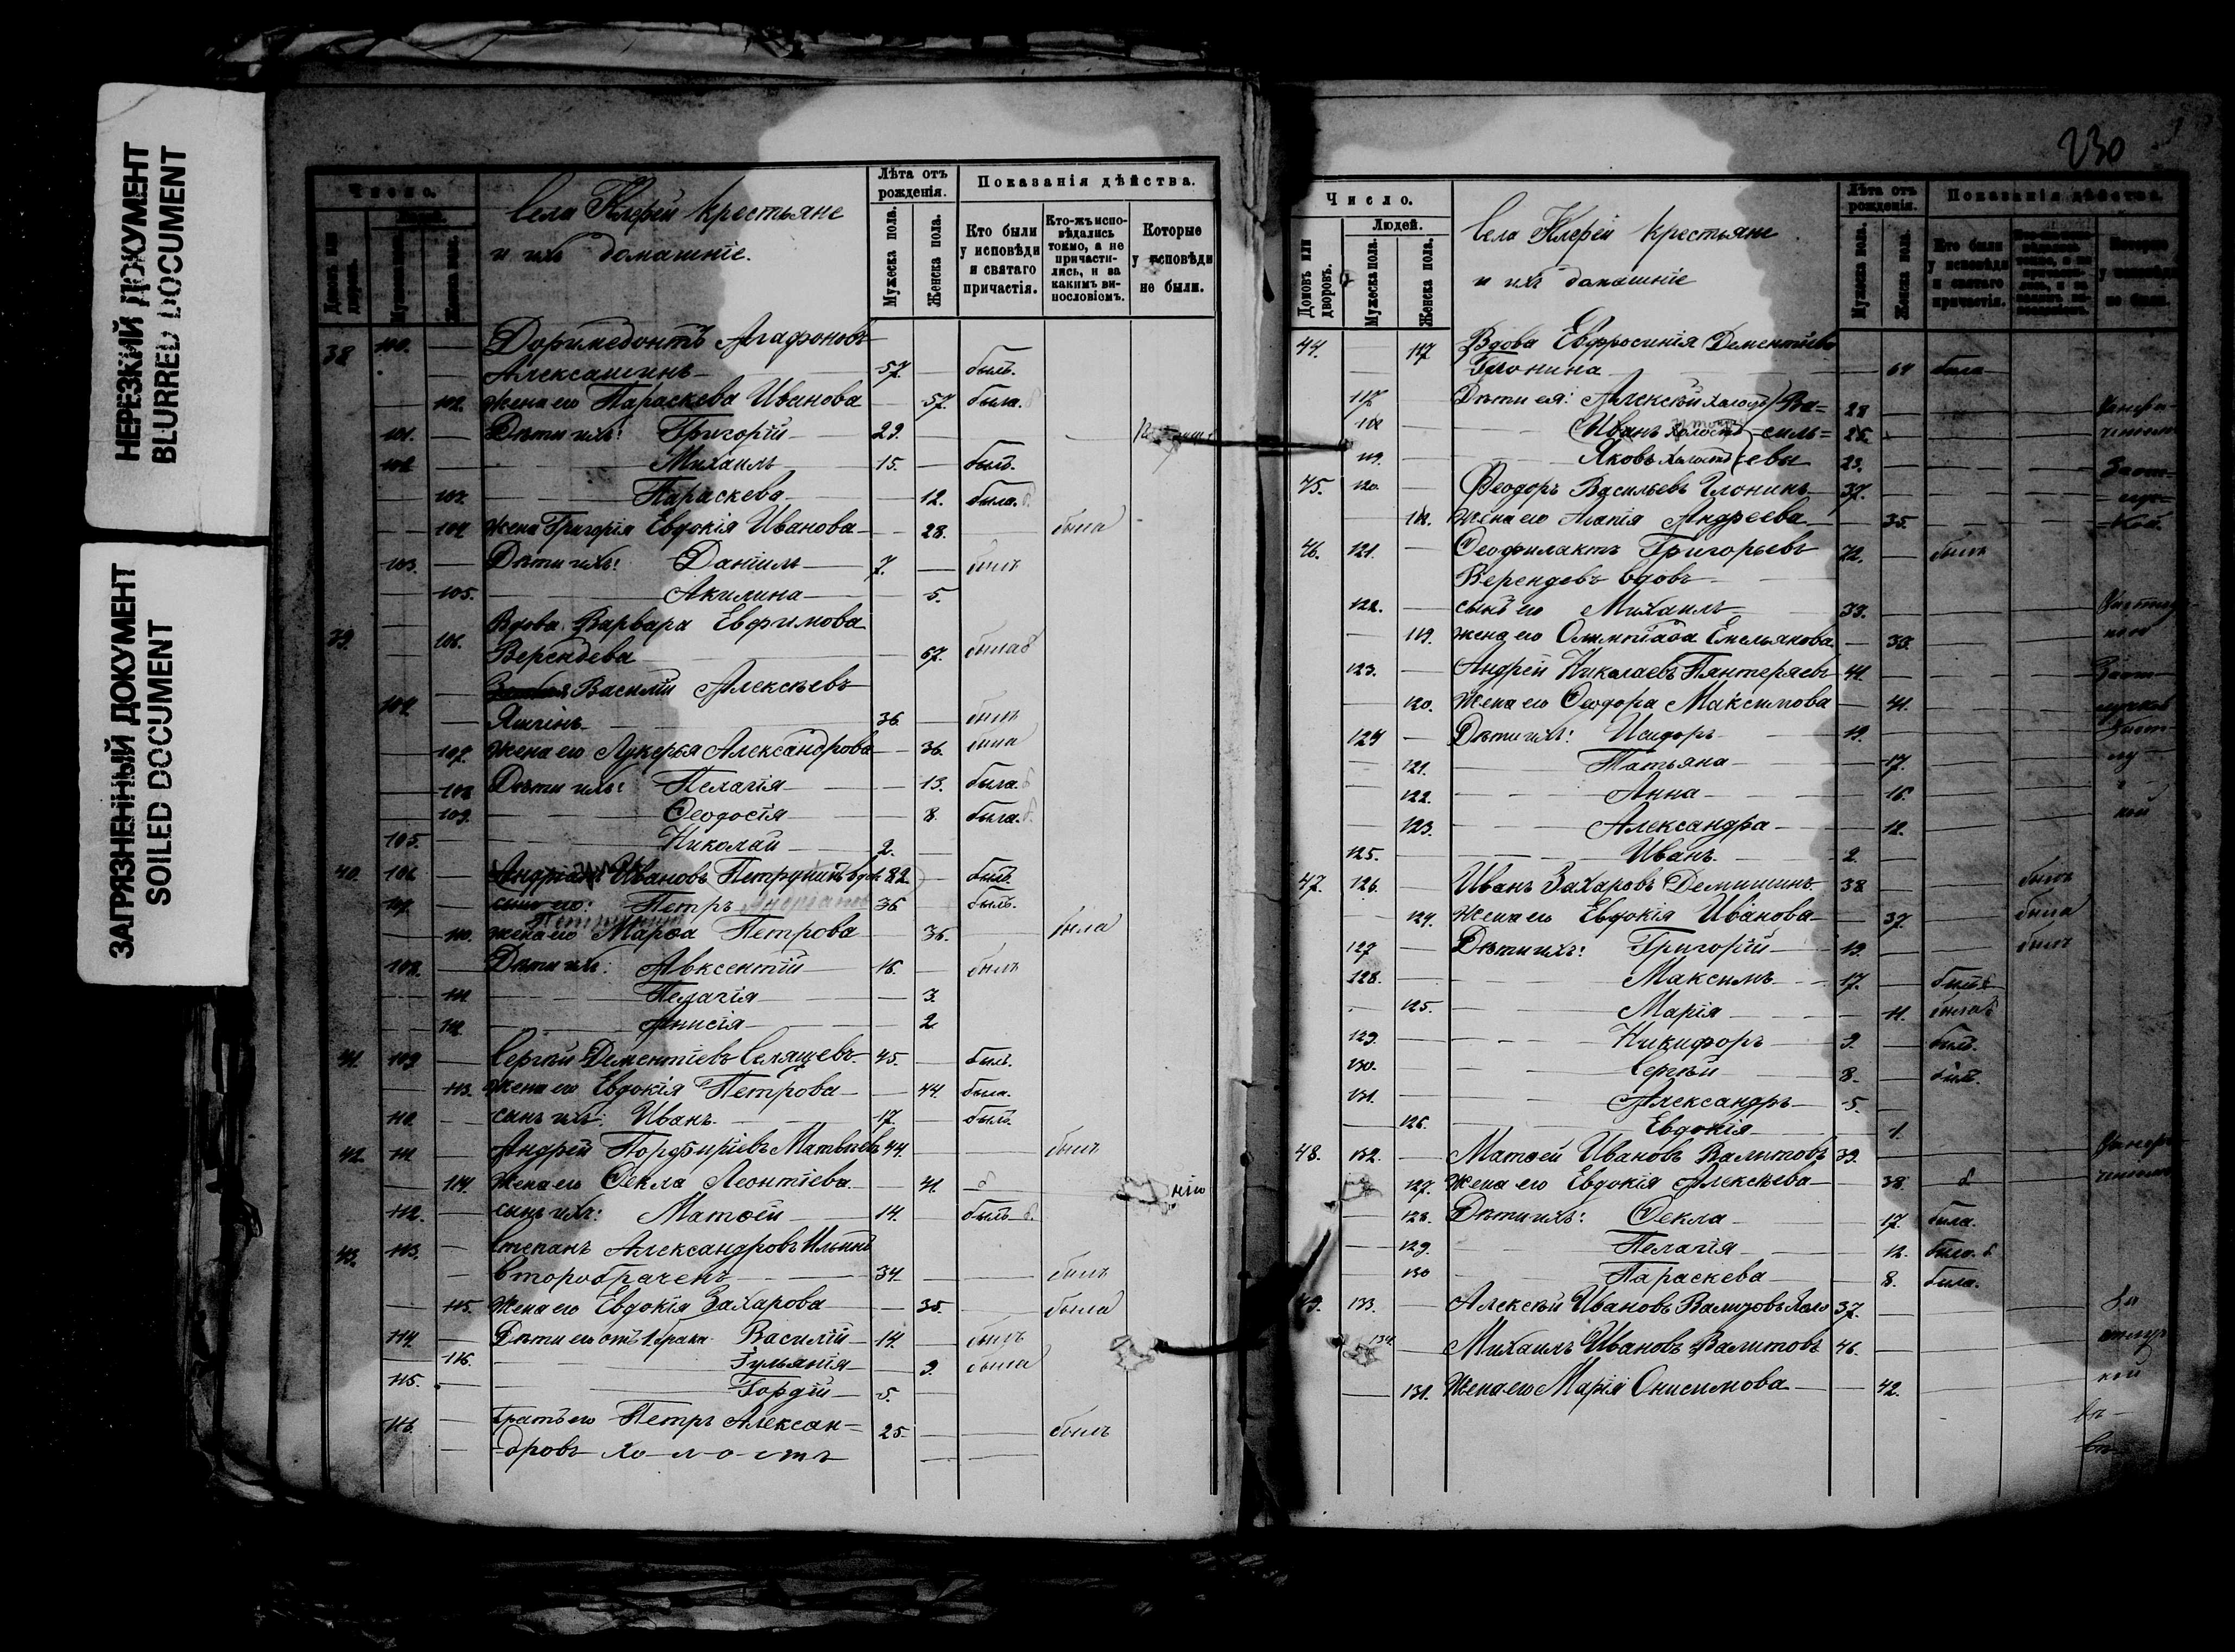 НЕРЕЗКИЙ ДОКУМЕНТ
BLURRED DOCUMENT
ЗАГРЯЗНЕННЫЙ ДОКУМЕНТ
SOILED DOCUMENT
Число.
Лѣта отъ рожденія.
Показанія дѣйства.
Мужеска пола.
Женска пола.
Кто были у исповѣди и святаго причастія.
Кто-жъ исповѣдались токмо, а не причастились, и за какимъ винословіемъ.
Которые у исповѣди не были.
Села крестьяне
и ихъ домашніе.
38 100. Доримедонтъ Агафоновъ
Алексашинъ 57. былъ.
102. жена его Параскева Иванова 57. была.
101. Дѣти ихъ: Григорій 29.
102 Михаилъ 15. былъ.
103. Параскева 12. была.
104 жена Григорія Евдокія Иванова 28. была
103. Дѣти ихъ: Даніилъ 7. былъ
105. Акилина 5.
39. 106. Вдова Варвара Евфимова
Верендева 67. была
104. Василій Алексѣевъ
Яшинъ 36. былъ
107. жена его Лукерья Александрова 36. была
108 Дѣти ихъ: Пелагія 13. была.
109. Ѳеодосія 8. была.
105. Николай 2.
40. 106 Ивановъ Петрунинъ вдов 82 былъ.
107. сынъ его: Петръ 36 былъ.
110. жена его Марѳа Петрова 36. была
108. Дѣти ихъ: Авксентій 16. былъ
111. Пелагія 3.
112. Анисія 2
41. 109 Сергѣй Дементіевъ Селящевъ 45. былъ.
113. жена его Евдокія Петрова 44. была.
110. сынъ ихъ: Иванъ 17. былъ.
42. 111 Андрей Порфиріевъ Матвѣевъ 44. былъ
114. жена его Ѳекла Леонтіева 41. б
112. сынъ ихъ: Матѳей 14. былъ
43. 113. Степанъ Александровъ Ильинъ
второбраченъ 34. былъ
115. жена его Евдокія Захарова 35. была
114. Дѣти его отъ 1 брака Василій 14. былъ
116. Іульянія 9. была
115. Гордій 5.
116. братъ его Петръ Алексан=
дровъ хо-л-о-стъ 25. былъ
230
Число.
Домовъ или дворовъ.
Людей.
Мужеска пола.
Женска пола.
Лѣта отъ рожденія.
Показанія дѣйства.
Мужеска пола.
Женска пола.
Кто были у исповѣди и святаго причастія.
Села крестьяне
и ихъ домашніе
44. 117 Вдова Евфросинія Дементіева
64 была
117 Дѣти ея: Алексѣй холостъ Ва= 28
118 Иванъ холостъ силь= 25.
119. Яковъ холостъ евы 23.
45. 120. Ѳеодоръ Васильевъ 37.
118. жена его Агапія Андреева 35.
46. 121. Ѳеофилактъ Григорьевъ 72. былъ
Верендевъ вдовъ
122. сынъ его Михаилъ 33.
119. жена его Олимпіада Емельянова 30.
123. Андрей Николаевъ Пянтеряевъ 41.
120. жена его Ѳеодора Максимова 41.
124 Дѣти ихъ: Исидоръ 19.
121. Татьяна 17.
122. Анна 16.
123. Александра 12.
125. Иванъ 2.
47. 126. Иванъ Захаровъ Демишинъ 38 былъ
124. жена его Евдокія Иванова 37. была
127 Дѣти ихъ: Григорій 19. былъ
128. Максимъ 17. былъ
125. Марія 11. была
129. Никифоръ 9. былъ.
130. Сергѣй 8. былъ.
131. Александръ 5.
126. Евдокія 1.
48. 132. Матѳей Ивановъ Валитовъ 39.
127. жена его Евдокія Алексѣева 38. б.
128. Дѣти ихъ: Ѳекла 17. была.
129. Пелагія 12. была.
130 Параскева 8. была.
49. 133. Алексѣй Ивановъ Валитовъ 37.
134. Михаилъ Ивановъ Валитовъ 46.
131. жена его Марія Онисимова 42.